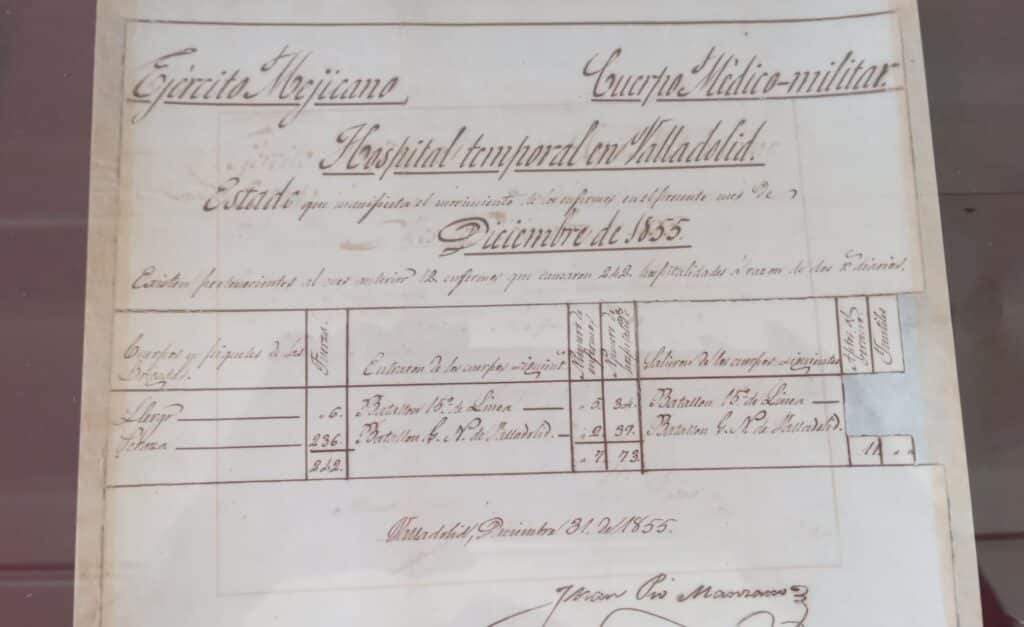 Ejército Mejicano
Cuerpo Médico-militar.
Hospital temporal en Valladolid.
Estado que manifiesta el movimiento de los enfermos en el presente mes de
Diciembre de 1855.
Existen pertenecientes al mes anterior 12 enfermos que causaron 242 hospitalidades á razon de dos rs. diarios.
Cuerpos y piquetes de las
Entraron de los cuerpos siguient.s
Numero de enfermos,
Numero de hospitalid.s
Salieron de los cuerpos siguientes
Batallon 15º. de Linea
Batallon 15º. de Linea
Batallon G. N. de Valladolid.
Batallon G. N. de Valladolid.
6.
5.
34.
236.
2
37.
242.
7.
73.
11.
Valladolid, Diciembre 31. de 1855.
Juan Pio Manzano